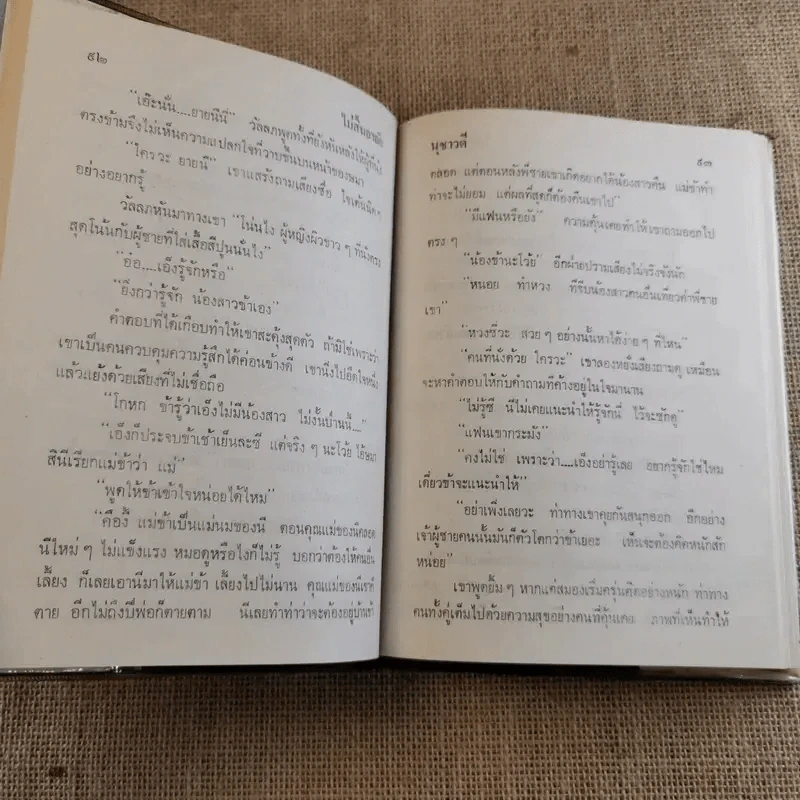 ๙๒
ไม่สิ้นอาลัย
"เอ๊ะนั่น....ยายนีนี่" วัลลภพูดทั้งที่ยังหันหลังให้ผู้ที่นั่ง
ตรงข้ามจึงไม่เห็นความแปลกใจที่วาบขึ้นบนหน้าของษมา
"ใครวะ ยายนี" เขาแสร้งถามเสียงซื่อ ใจเต้นนิด ๆ
อย่างอยากรู้
วัลลภหันมาทางเขา "โน่นไง ผู้หญิงผิวขาว ๆ ที่นั่งตรง
สุดโน้นกับผู้ชายที่ใส่เสื้อสีปูนนั่นไง"
"อ๋อ....เอ็งรู้จักหรือ"
"ยิ่งกว่ารู้จัก น้องสาวข้าเอง"
คำตอบที่ได้เกือบทำให้เขาสะดุ้งสุดตัว ถ้ามิใช่เพราะว่า
เขาเป็นคนควบคุมความรู้สึกได้ค่อนข้างดี เขานิ่งไปอึดใจหนึ่ง
แล้วแย้งด้วยเสียงที่ไม่เชื่อถือ
"โกหก ข้ารู้ว่าเอ็งไม่มีน้องสาว ไม่งั้นป่านนี้...."
"เอ็งก็ประจบข้าเช้าเย็นละซี แต่จริง ๆ นะโว้ย ไอ้ษมา
สินีเรียกแม่ข้าว่า แม่"
"พูดให้ข้าเข้าใจหน่อยได้ไหม"
"คืองี้ แม่ข้าเป็นแม่นมของนี ตอนคุณแม่ของนีคลอด
นีใหม่ ๆ ไม่แข็งแรง หมอดูหรือไงก็ไม่รู้ บอกว่าต้องให้คนอื่น
เลี้ยง ก็เลยเอานีมาให้แม่ข้า เลี้ยงไปไม่นาน คุณแม่ของนีเขาก็
ตาย อีกไม่ถึงปีพ่อก็ตายตาม นีเลยทำท่าว่าจะต้องอยู่บ้านข้า
นุชาวดี
๙๓
ตลอด แต่ตอนหลังพี่ชายเขาเกิดอยากได้น้องสาวคืน แม่ข้าทำ
ท่าจะไม่ยอม แต่ผลที่สุดก็ต้องคืนเขาไป"
"มีแฟนหรือยัง" ความคุ้นเคยทำให้เขาถามออกไป
ตรง ๆ
"น้องข้านะโว้ย" อีกฝ่ายปรามเสียงไม่จริงจังนัก
"หนอย ทำหวง ทีจีบน้องสาวคนอื่นเที่ยวด่าพี่ชาย
เขา"
"หวงซีวะ สวย ๆ อย่างนั้นหาได้ง่าย ๆ ที่ไหน"
"คนที่นั่งด้วย ใครวะ" เขาลองหยั่งเสียงถามดู เหมือน
จะหาคำตอบให้กับคำถามที่ค้างอยู่ในใจมานาน
"ไม่รู้ซี นีไม่เคยแนะนำให้รู้จักนี่ ไว้จะซักดู"
"แฟนเขากระมัง"
"คงไม่ใช่ เพราะว่า....เอ็งอย่ารู้เลย อยากรู้จักใช่ไหม
เดี๋ยวข้าจะแนะนำให้"
"อย่าเพิ่งเลยวะ ท่าทางเขาคุยกันสนุกออก อีกอย่าง
เจ้าผู้ชายคนนั้นมันก็ตัวโตกว่าข้าเยอะ เห็นจะต้องคิดหนักสัก
หน่อย"
เขาพูดยิ้ม ๆ หากแต่สมองเริ่มครุ่นคิดอย่างหนัก ท่าทาง
คนทั้งคู่เต็มไปด้วยความสุขอย่างคนที่คุ้นเคย ภาพที่เห็นทำให้